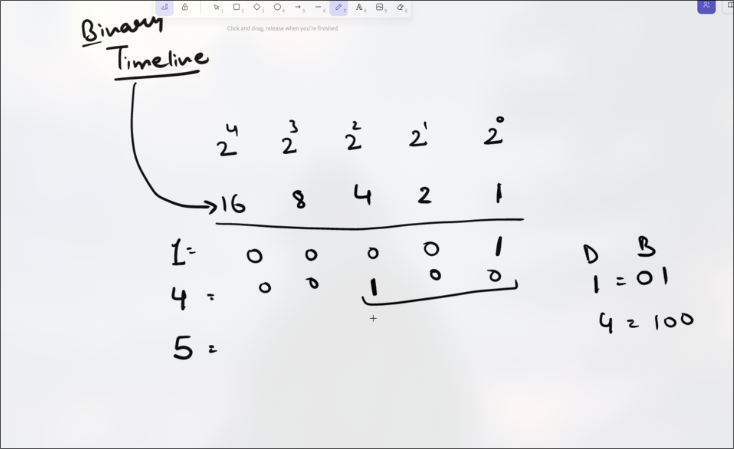 Click and drag, release when you're finished
Binary
Timeline
2⁴ 2³ 2² 2¹ 2⁰
16 8 4 2 1
1= 0 0 0 0 1
4 = 0 0 1 0 0
5 =
D B
1 = 01
4 = 100